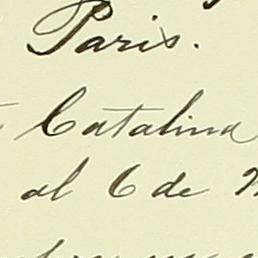 Paris.
Catalina
al 6 de